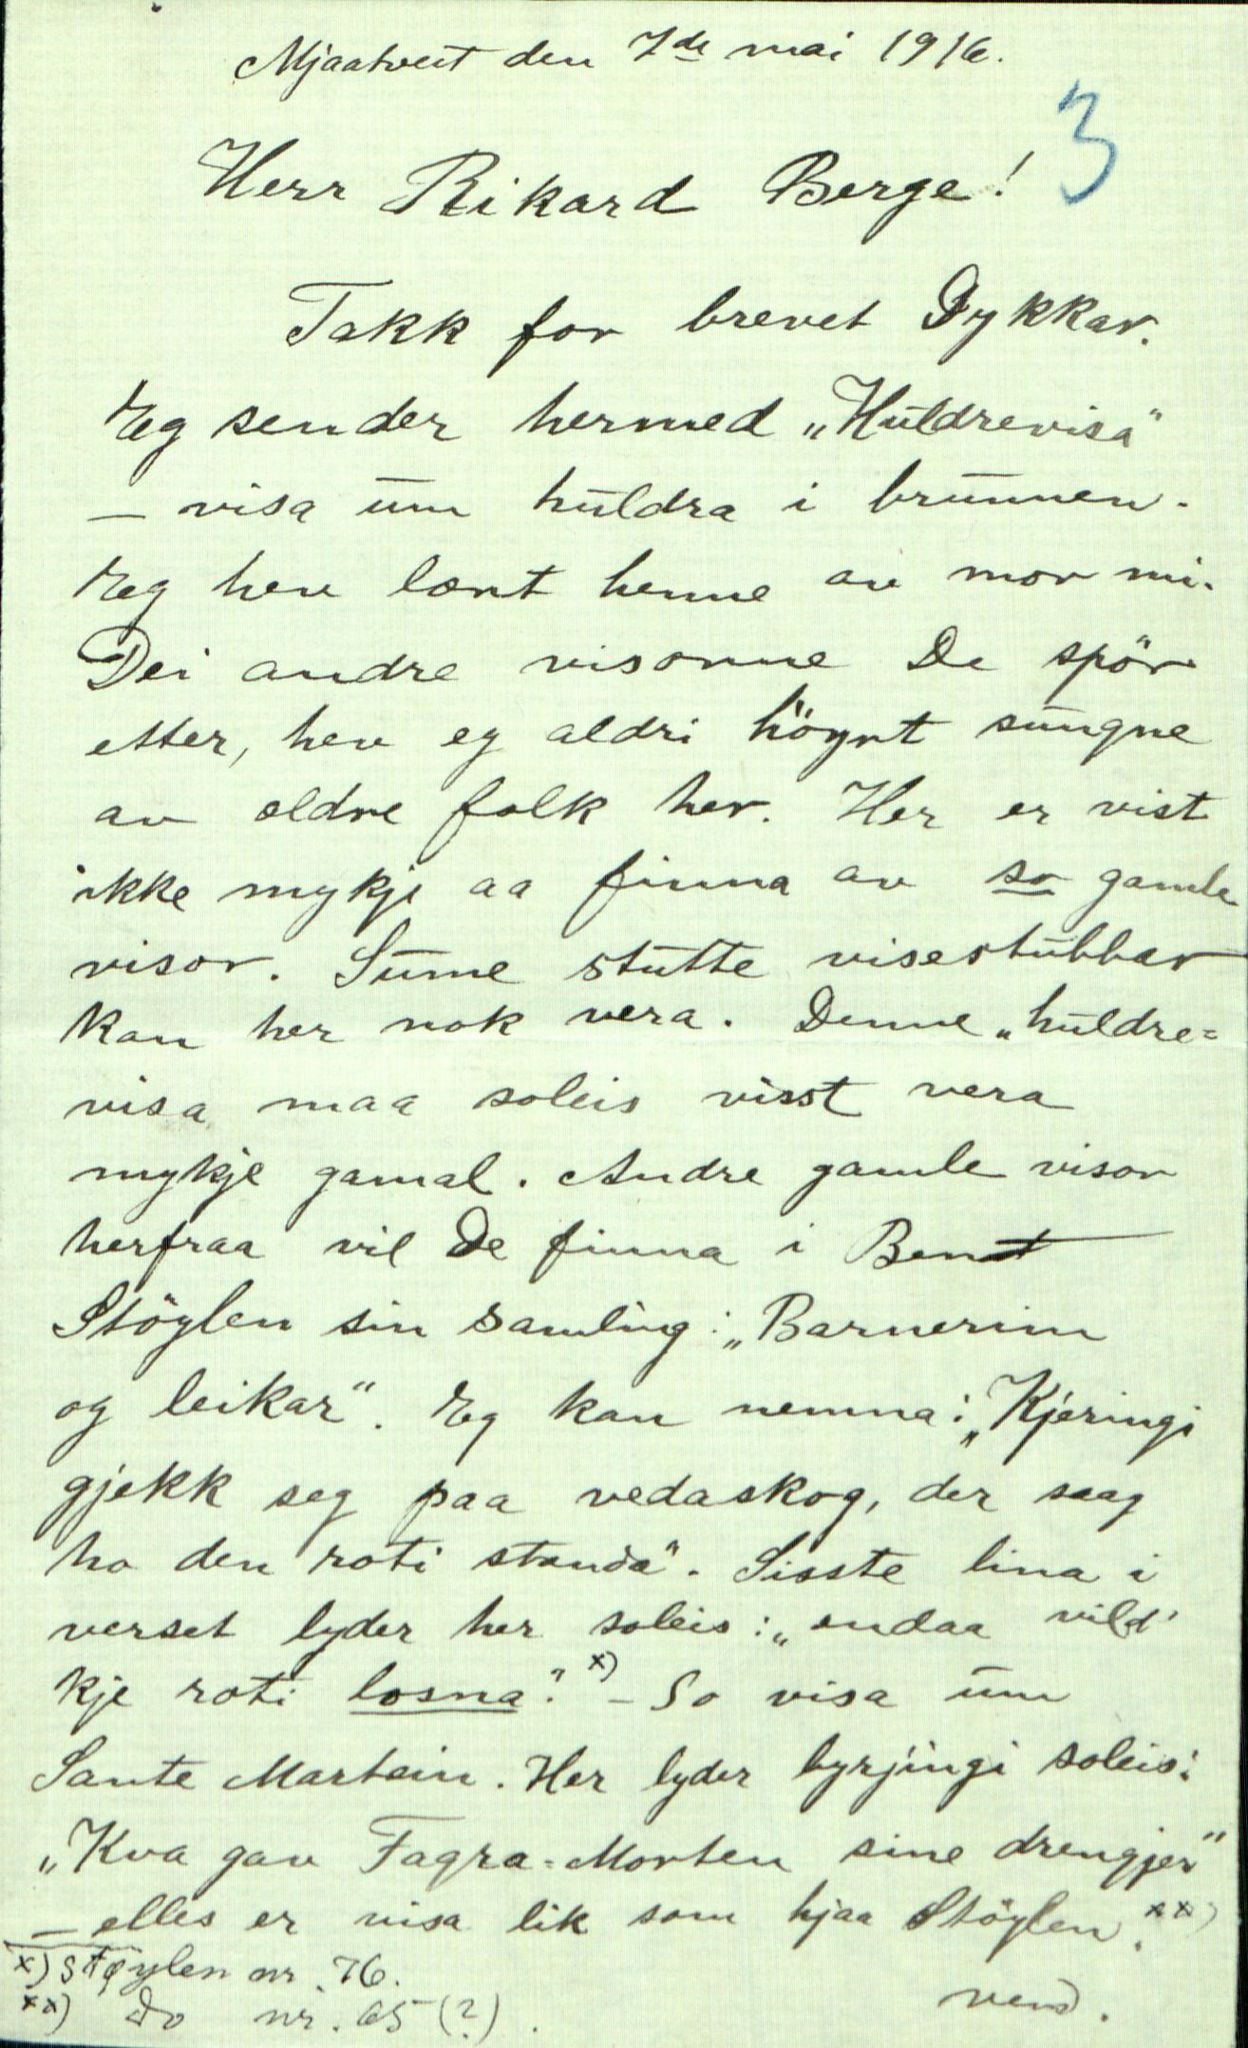 Mjaatveit den 7de mai 1916.
3
Herr Rikard Berge!
Takk for brevet Dykkar.
Eg sender hermed „Huldrevisa“
— visa um huldra i brunnen.
Eg hev lært henne av mor mi.
Dei andre visorne De spör
etter, hev eg aldri höyrt sungne
av eldre folk her. Her er vist
ikke mykje aa finna av so gamle
visor. Sume stutte visestubbar
kan her nok vera. Denne „huldre=
visa maa soleis visst vera
mykje gamal. Andre gamle visor
herfraa vil De finna i Bernt
Stöylen sin samling: „Barnerim
og leikar“. Eg kan nemna: „Kjeringi
gjekk seg paa vedaskog, der saag
ho den roti standa“. Sisste lina i
verset lyder her soleis: „endaa vild'
kje roti losna“. x) — So visa um
Sante Martein. Her lyder byrjingi soleis:
„Kva gav Fagra-Morten sine drengjer“
— elles er visa lik som hjaa Stöylen. xx)
x) Støylen nr. 76.
xx) Do nr. 65 (?).
vend.